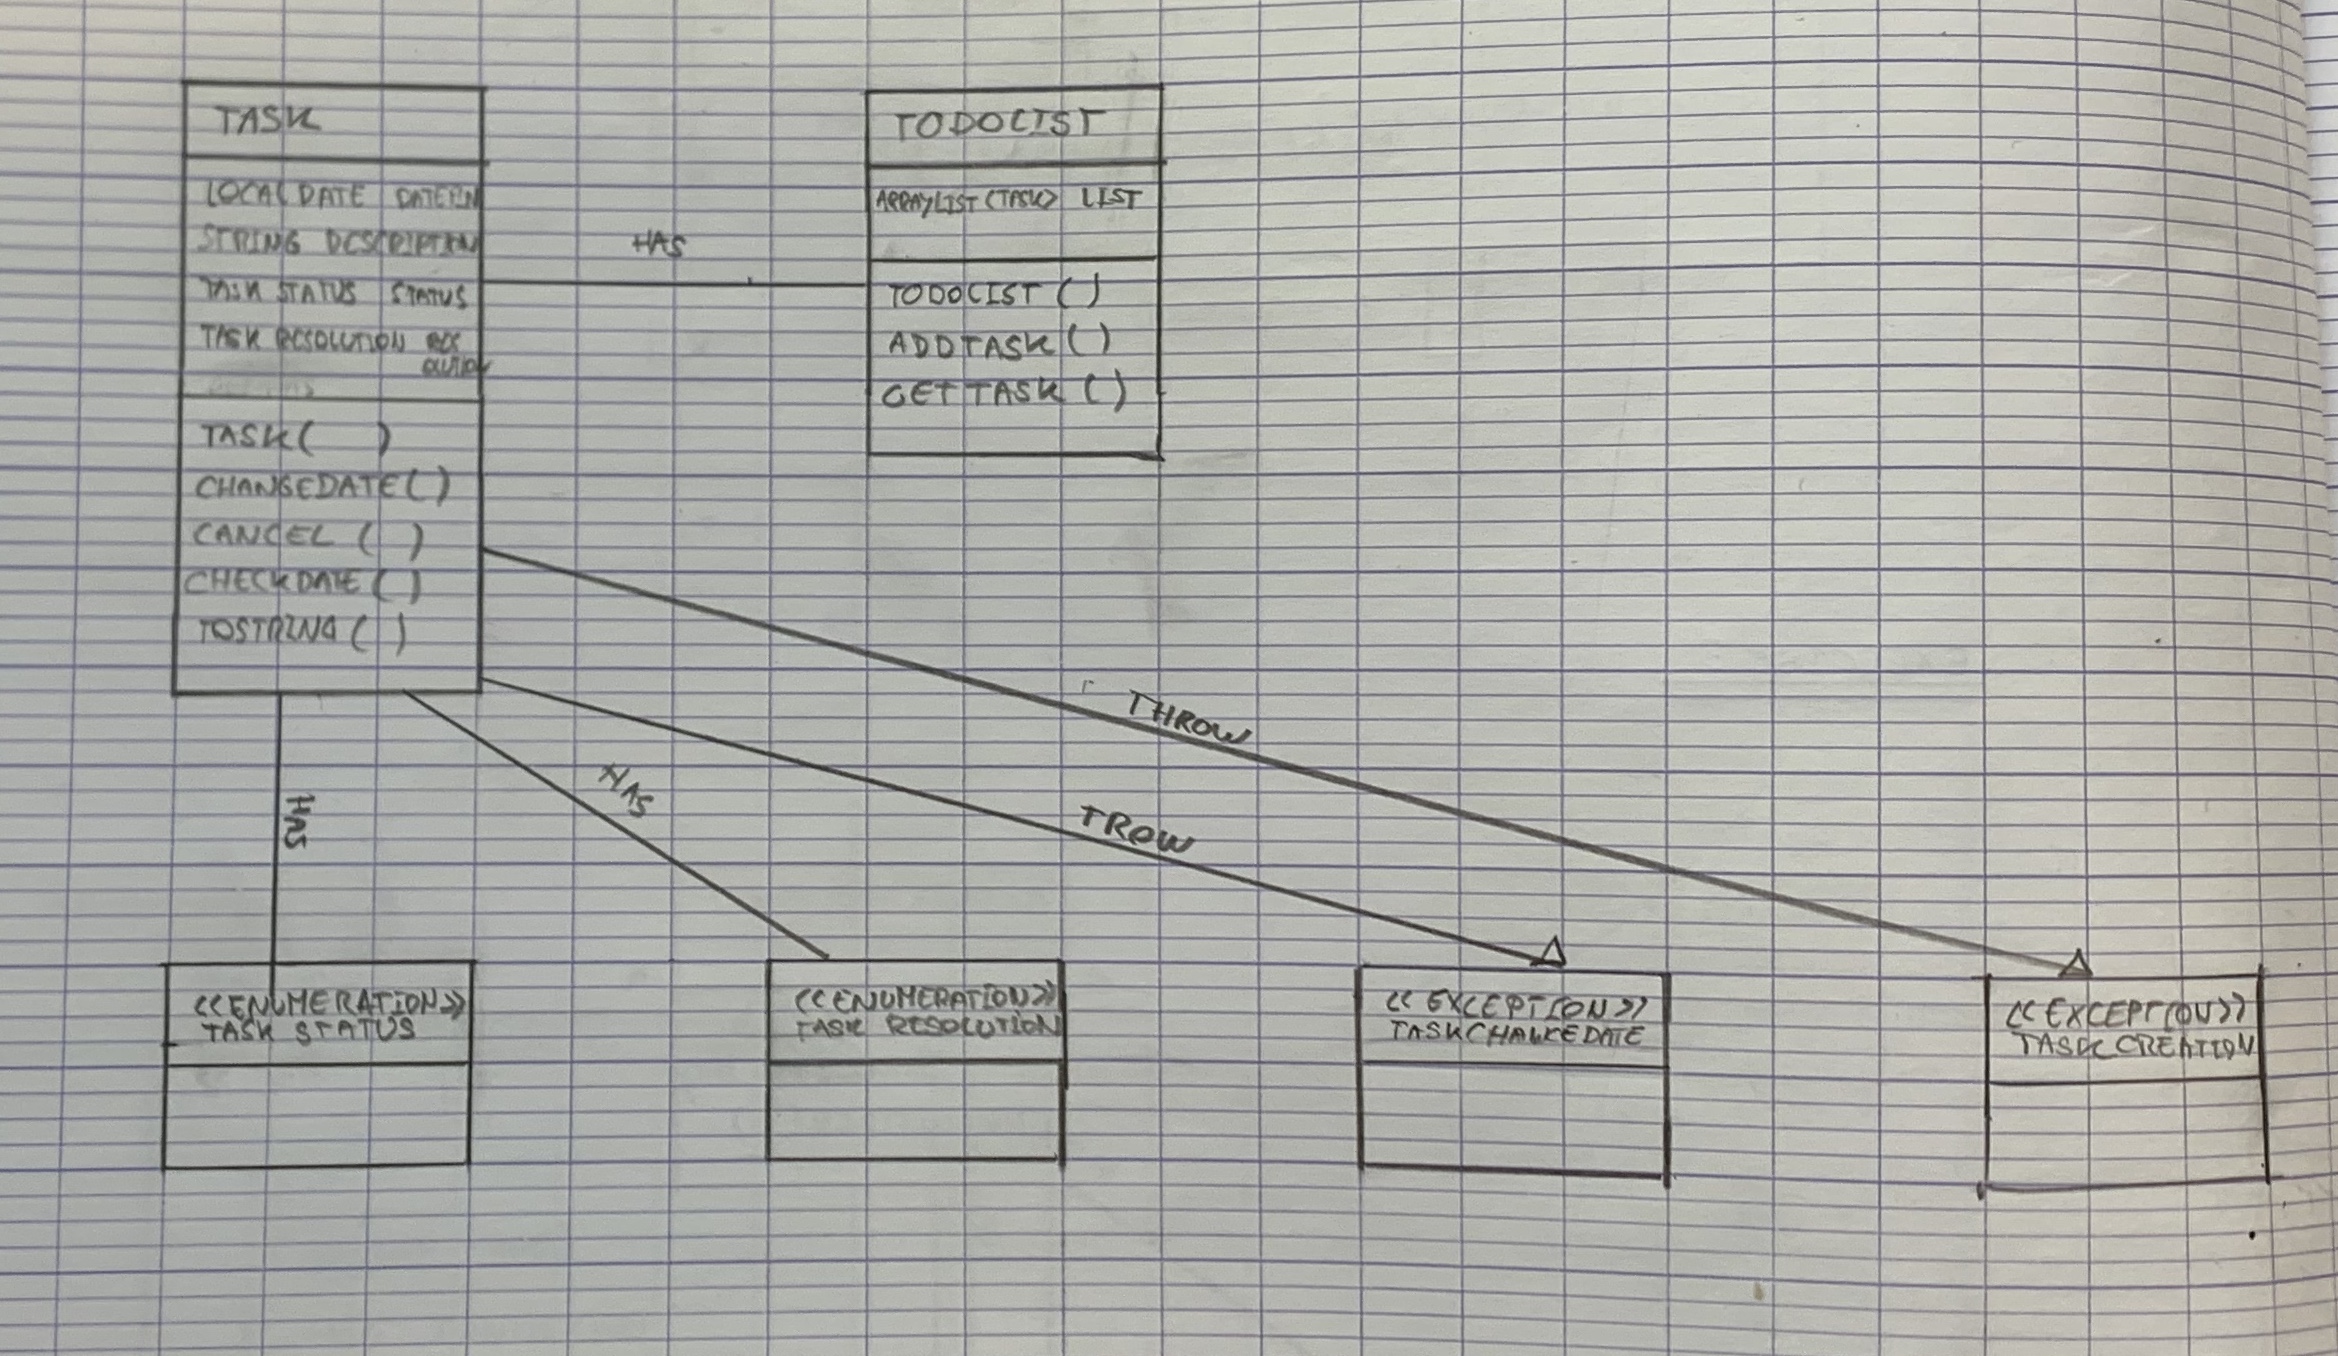 TASK
LOCALDATE DATEFIN
STRING DESCRIPTION
TASK STATUS STATUS
TASK RESOLUTION RES
OLUTION
TASK( )
CHANGEDATE()
CANCEL ( )
CHECKDATE()
TOSTRING( )
HAS
TODOLIST
ARRAYLIST(TASK> LIST
TODOLIST ()
ADDTASK()
GETTASK ()
THROW
TROW
HAS
HAS
<<ENUMERATION>>
TASK STATUS
<<ENUMERATION>>
TASK RESOLUTION
<<EXCEPTION>>
TASKCHANGEDATE
<<EXCEPTION>>
TASKCREATION